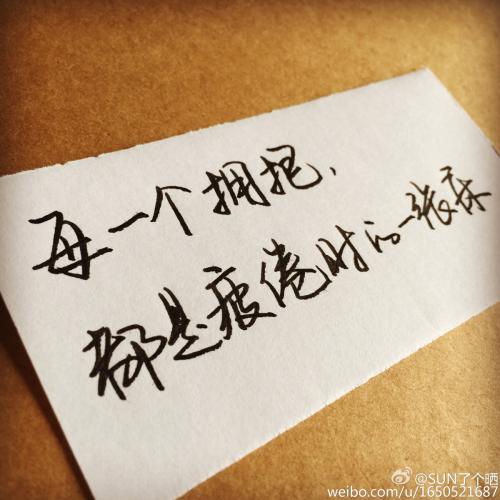 每一个拥抱，
都是疲倦时的一张床
@SUN了个晒
weibo.com/u/1650521687